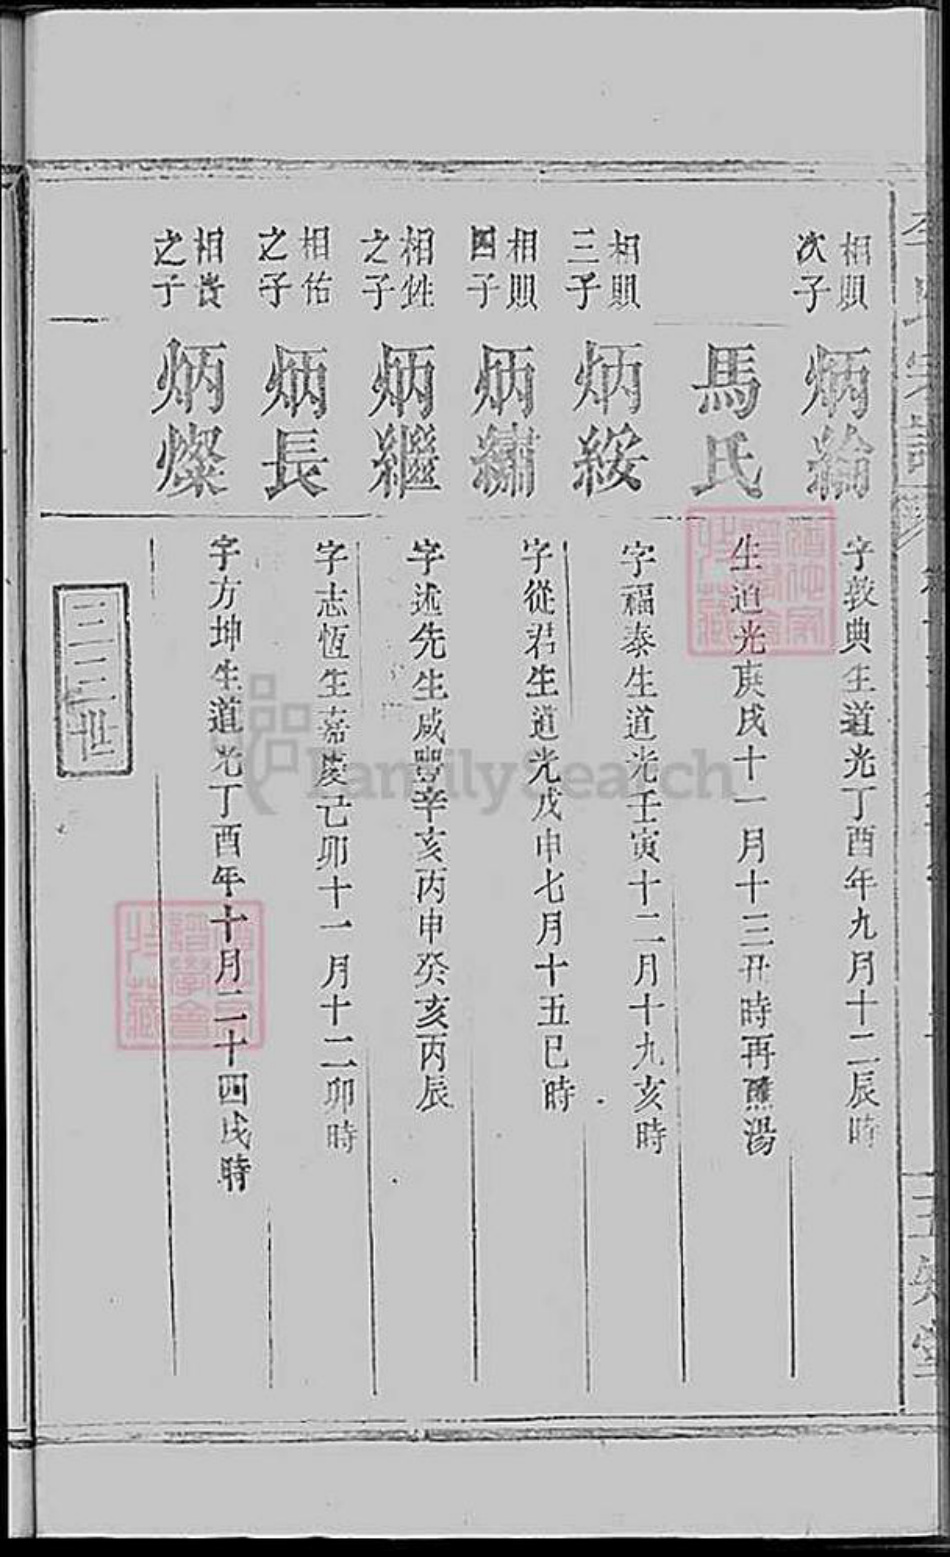 相貺
次子
炳綸
字敦典生道光丁酉年九月十二辰時
馬氏
生道光庚戌十一月十三丑時再醮湯
相貺
三子
炳綏
字福泰生道光壬寅十二月十九亥時
相貺
四子
炳繡
字從君生道光戊申七月十五巳時
相甡
之子
炳繼
字述先生咸豐辛亥丙申癸亥丙辰
相佑
之子
炳長
字志恆生嘉慶己卯十一月十二卯時
相貴
之子
炳燦
字方坤生道光丁酉年十月二十四戌時
二三世
FamilySearch